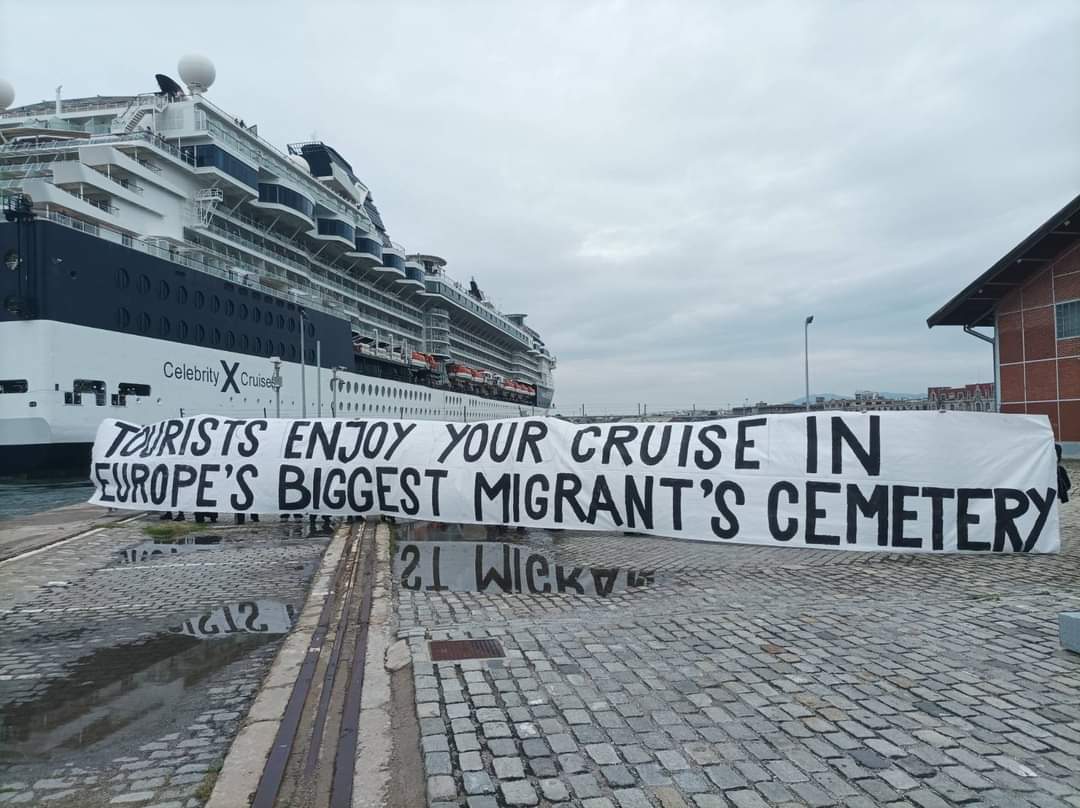 Celebrity X Cruises
TOURISTS ENJOY YOUR CRUISE IN
EUROPE'S BIGGEST MIGRANT'S CEMETERY